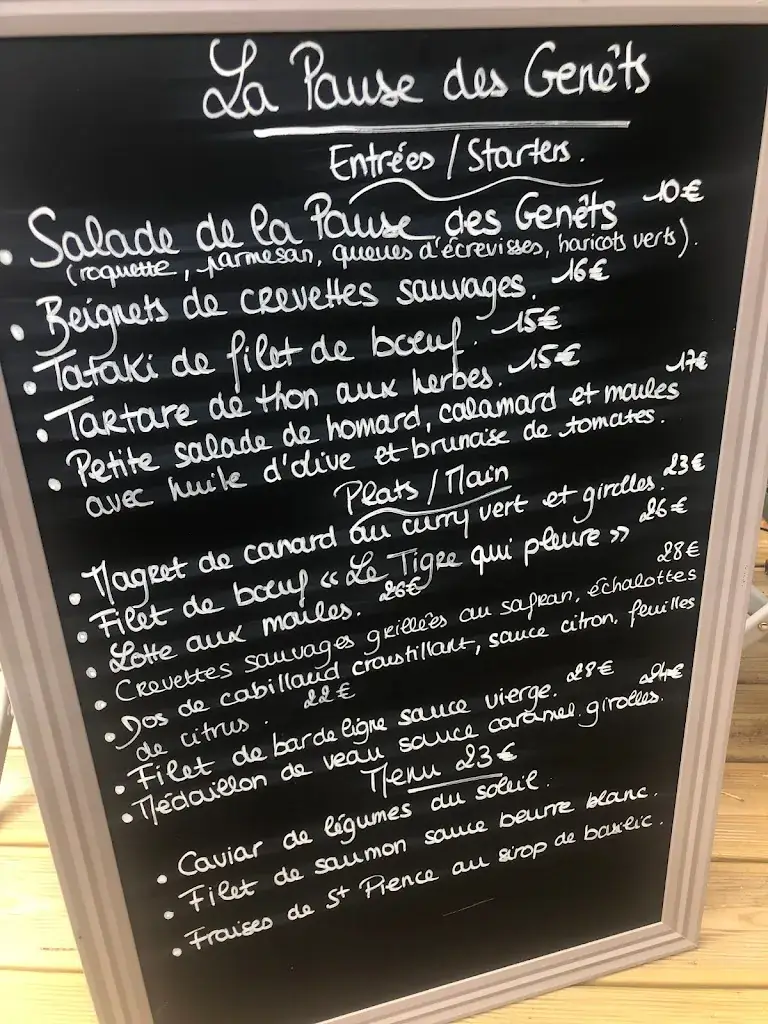 La Pause des Genêts
Entrées / Starters.
• Salade de la Pause des Genêts 10€
(roquette, parmesan, queues d'écrevisses, haricots verts).
• Beignets de crevettes sauvages. 16€
• Tataki de filet de bœuf. 15€
• Tartare de thon aux herbes. 15€
• Petite salade de homard, calamard et moules 17€
avec huile d'olive et brunoise de tomates.
Plats / Main
• Magret de canard au curry vert et girolles. 23€
• Filet de bœuf « Le Tigre qui pleure » 26€
• Lotte aux moules. 26€
• Crevettes sauvages grillées au safran, échalottes 28€
• Dos de cabillaud croustillant, sauce citron, feuilles
de citrus. 22€
• Filet de bar de ligne sauce vierge. 28€
• Médaillon de veau sauce caramel girolles. 24€
Menu 23€
• Caviar de légumes du soleil.
• Filet de saumon sauce beurre blanc.
• Fraises de St Pience au sirop de basilic.